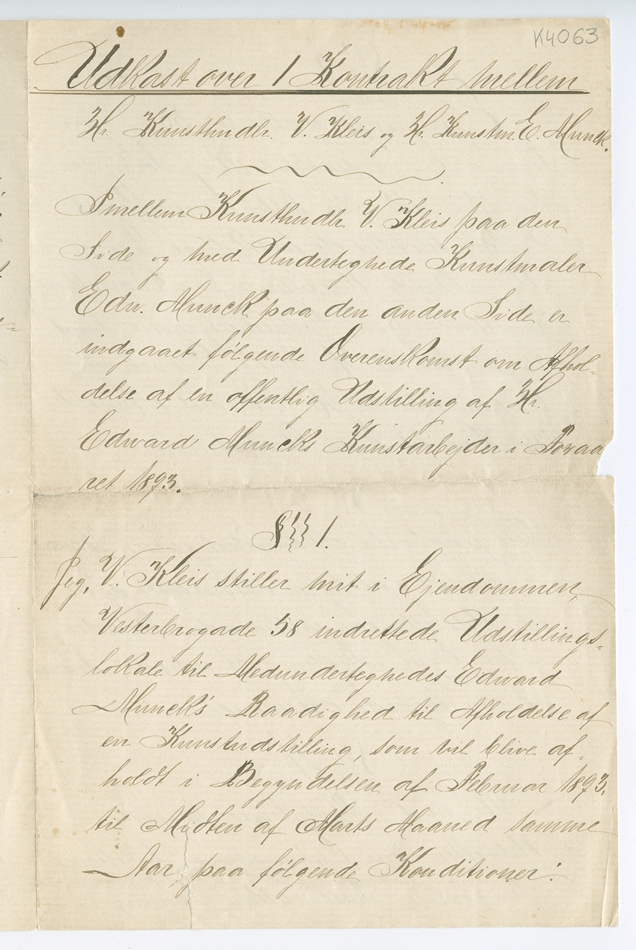 K4063
Udkast over 1 Kontrakt mellem
Hr. Kunsthndlr. V. Kleis og Hr. Kunstm. E. Munck.
Imellem Kunsthndlr. V. Kleis paa den
Side og med Undertegnede Kunstmaler
Edw. Munck paa den anden Side er
indgaaet følgende Overenskomst om Afhol-
delse af en offentlig Udstilling af Hr.
Edward Muncks Kunstarbejder i Foraa
ret 1893.
§§§ 1.
Jeg, V. Kleis stiller mit i Ejendommen,
Vesterbrogade 58 indrettede Udstillings-
lokale til Medundertegnedes Edward
Munck's Raadighed til Afholdelse af
en Kunstudstilling, som vil blive af
holdt i Begyndelsen af Februar 1893.
til Midten af Marts Maaned samme
Aar, paa følgende Konditioner: